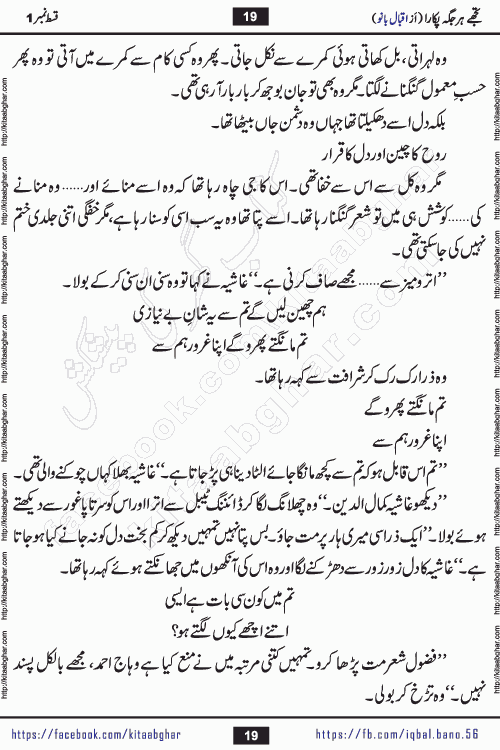 تجھے ہر جگہ پکارا (از اقبال بانو)
19
قسط نمبر 1
وہ لہراتی، بل کھاتی ہوئی کمرے سے نکل جاتی۔ پھر وہ کسی کام سے کمرے میں آتی تو وہ پھر
حسبِ معمول گنگنانے لگتا۔ مگر وہ بھی تو جان بوجھ کر بار بار آ رہی تھی۔
بلکہ دل اسے دھکیلتا تھا جہاں وہ دشمنِ جاں بیٹھا تھا۔
روح کا چین اور دل کا قرار
مگر وہ کل سے اس سے خفا تھی۔ اس کا جی چاہ رہا تھا کہ وہ اسے منائے اور...... وہ منانے
کی...... کوشش ہی میں تو شعر گنگنا رہا تھا۔ اسے پتا تھا وہ یہ سب اسی کو سنا رہا ہے، مگر خفگی اتنی جلدی ختم
نہیں کی جا سکتی تھی۔
”اترو میز سے...... مجھے صاف کرنی ہے۔“ غاشیہ نے کہا تو وہ سنی ان سنی کر کے بولا۔
ہم چھین لیں گے تم سے یہ شانِ بے نیازی
تم مانگتے پھرو گے اپنا غرور ہم سے
وہ ذرا رک رک کر شرافت سے کہہ رہا تھا۔
تم مانگتے پھرو گے
اپنا غرور ہم سے
”تم اس قابل ہو کہ تم سے کچھ مانگا جائے الٹا دینا ہی پڑ جاتا ہے۔“ غاشیہ بھلا کہاں چوکنے والی تھی۔
”دیکھو غاشیہ کمال الدین۔“ وہ چھلانگ لگا کر ڈائننگ ٹیبل سے اترا اور اس کو سرتاپا غور سے دیکھتے
ہوئے بولا۔ ”ایک ذرا سی میری ہار پر مت جاؤ۔ بس پتا نہیں تمہیں دیکھ کر کم بخت دل کو نہ جانے کیا ہو جاتا
ہے۔“ غاشیہ کا دل زور زور سے دھڑکنے لگا اور وہ اس کی آنکھوں میں جھانکتے ہوئے کہہ رہا تھا۔
تم میں کون سی بات ہے ایسی
اتنے اچھے کیوں لگتے ہو؟
”فضول شعر مت پڑھا کرو۔ تمہیں کتنی مرتبہ میں نے منع کیا ہے وہاج احمد، مجھے بالکل پسند
نہیں۔“ وہ تڑخ کر بولی۔
https://facebook.com/kitaabghar
19
https://fb.com/iqbal.bano.56
http://kitaabghar.com